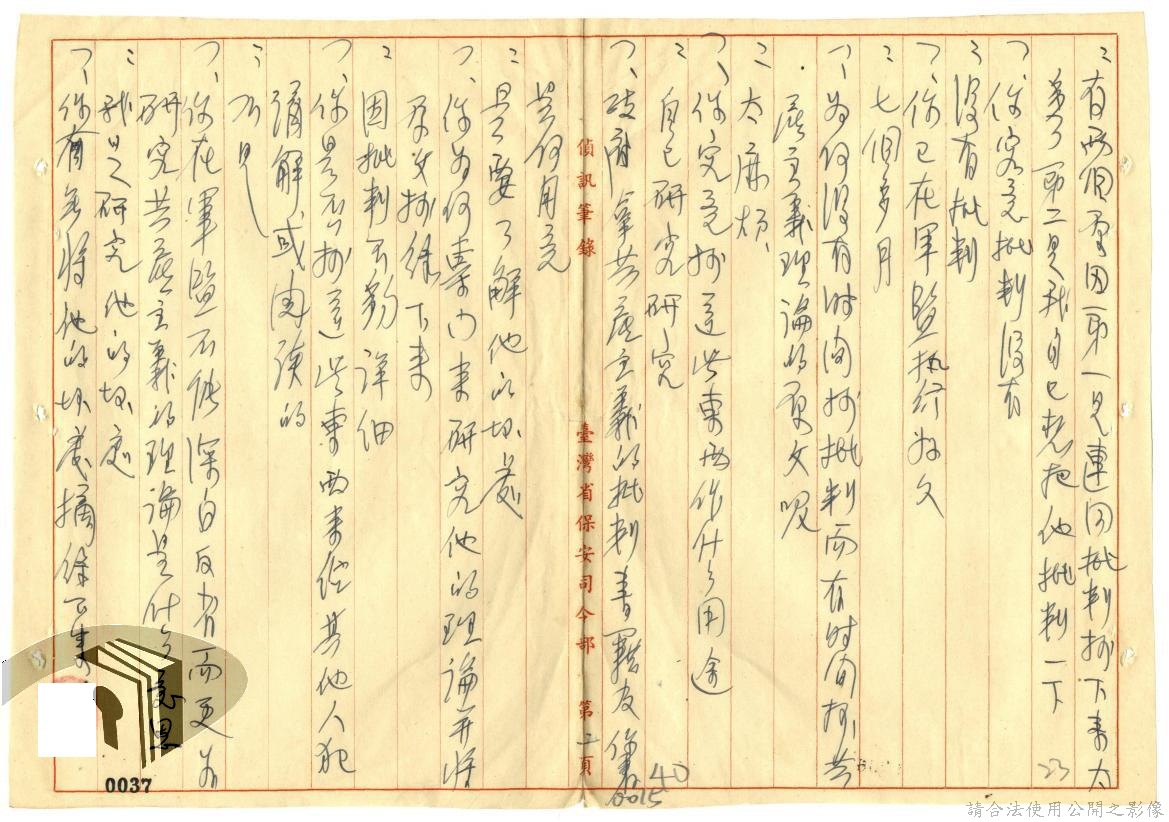 :有兩個原因第一是連同批判抄下來太
多了第二是我自己想把他批判一下
問、你究竟批判沒有
:沒有批判
問、你已在軍監執行好久
:七個多月
問、為何沒有時間抄批判而有時間抄共
產主義理論的原文呢
:太麻煩、
問、你究竟抄這些東西作什么用途
:自己研究研究
問、政府拿共產主義的批判書籍反
是何用意
:是要了解他的壞處
問、你為何專門來研究他的理論并將
原文抄錄下來
:因批判不夠詳細
問、你是否抄這些東西來供其他人犯
講解或閱讀的
:不是
問、你在軍監不能深自反省而更加
研究共產主義的理論是什么意思
:我是研究他的壞處
問、你有無將他的壞處摘錄下來
偵訊筆錄
臺灣省保安司令部
第二頁
23
40
0015
0037
請合法使用公開之影像